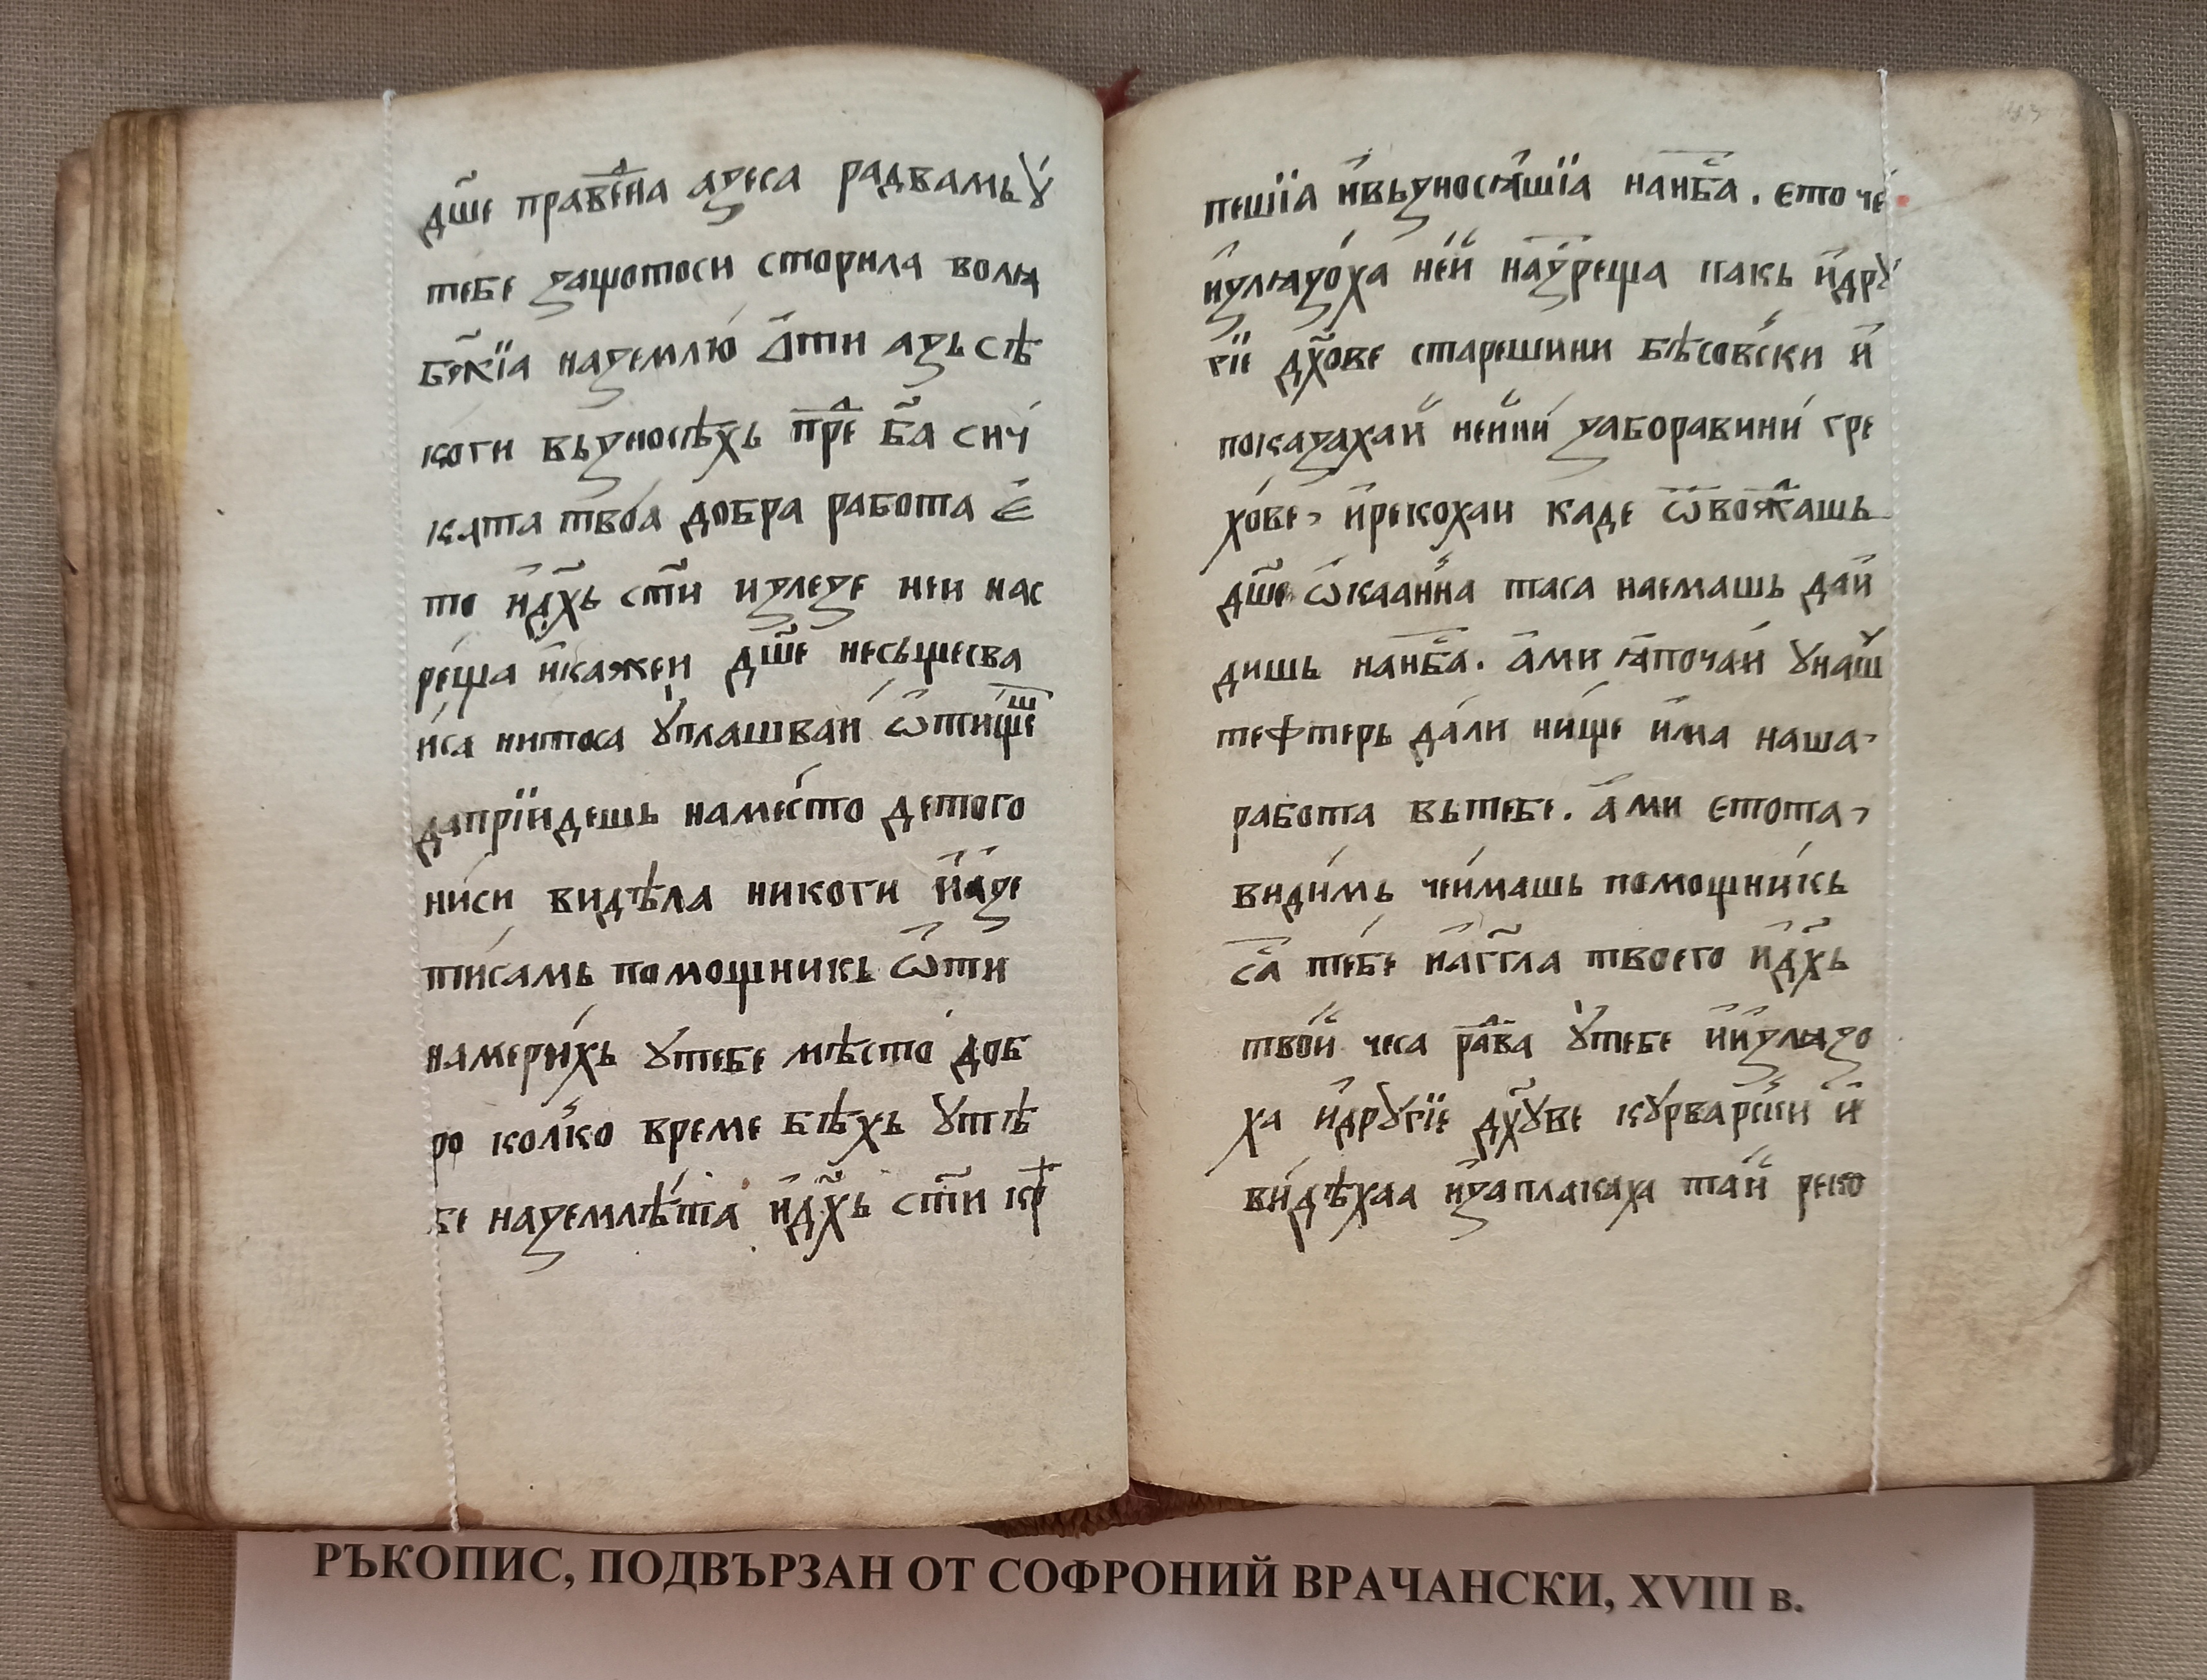 дш҃е праве́на азеса радвамьꙋ
тебе защотоси сторила волѧ
бж҃їѧ наземлю ѿти азь сѣ
коги вьзносѣхь пре́ ба҃ сич
ката твоа добра работа є
то идх҃ь ст҃и излезе неи нас
реща икажеи дш҃е несьщесва
иса нитоса ꙋплашваи ѿтище
даприїдешь наместо детого
ниси видѣла никоги иазе
тисамь помощникь ѿти
намерихь ꙋтебе мѣсто доб
ро колко време бѣхь ꙋтѣ
бе наземлѣта идх҃ь ст҃и кр
пешїа ивьзносѧшїа нанб҃а. єто че
излѧзоха ней назреща пакь идрꙋ
гїе дх҃ове старешини бѣсовски и
показахаи нейни заборавини гре
хове, ирекохаи каде ѿвождашь
дш҃е ѡкаанна таса наемашь даи
дишь нанб҃а. ами ѧпочаи ꙋнаш
тефтерь дали нище има наша
работа вьтебе. ами єтота
видимь чеимашь помощникь
са тебе наг҃гла твоего идх҃ь
твой чеса рава ꙋтебе иизлѧзо
ха идрꙋгїе дх҃ꙋве кꙋрварски и
видѣхаа изаплакаха тай реко
РЪКОПИС, ПОДВЪРЗАН ОТ СОФРОНИЙ ВРАЧАНСКИ, XVIII в.